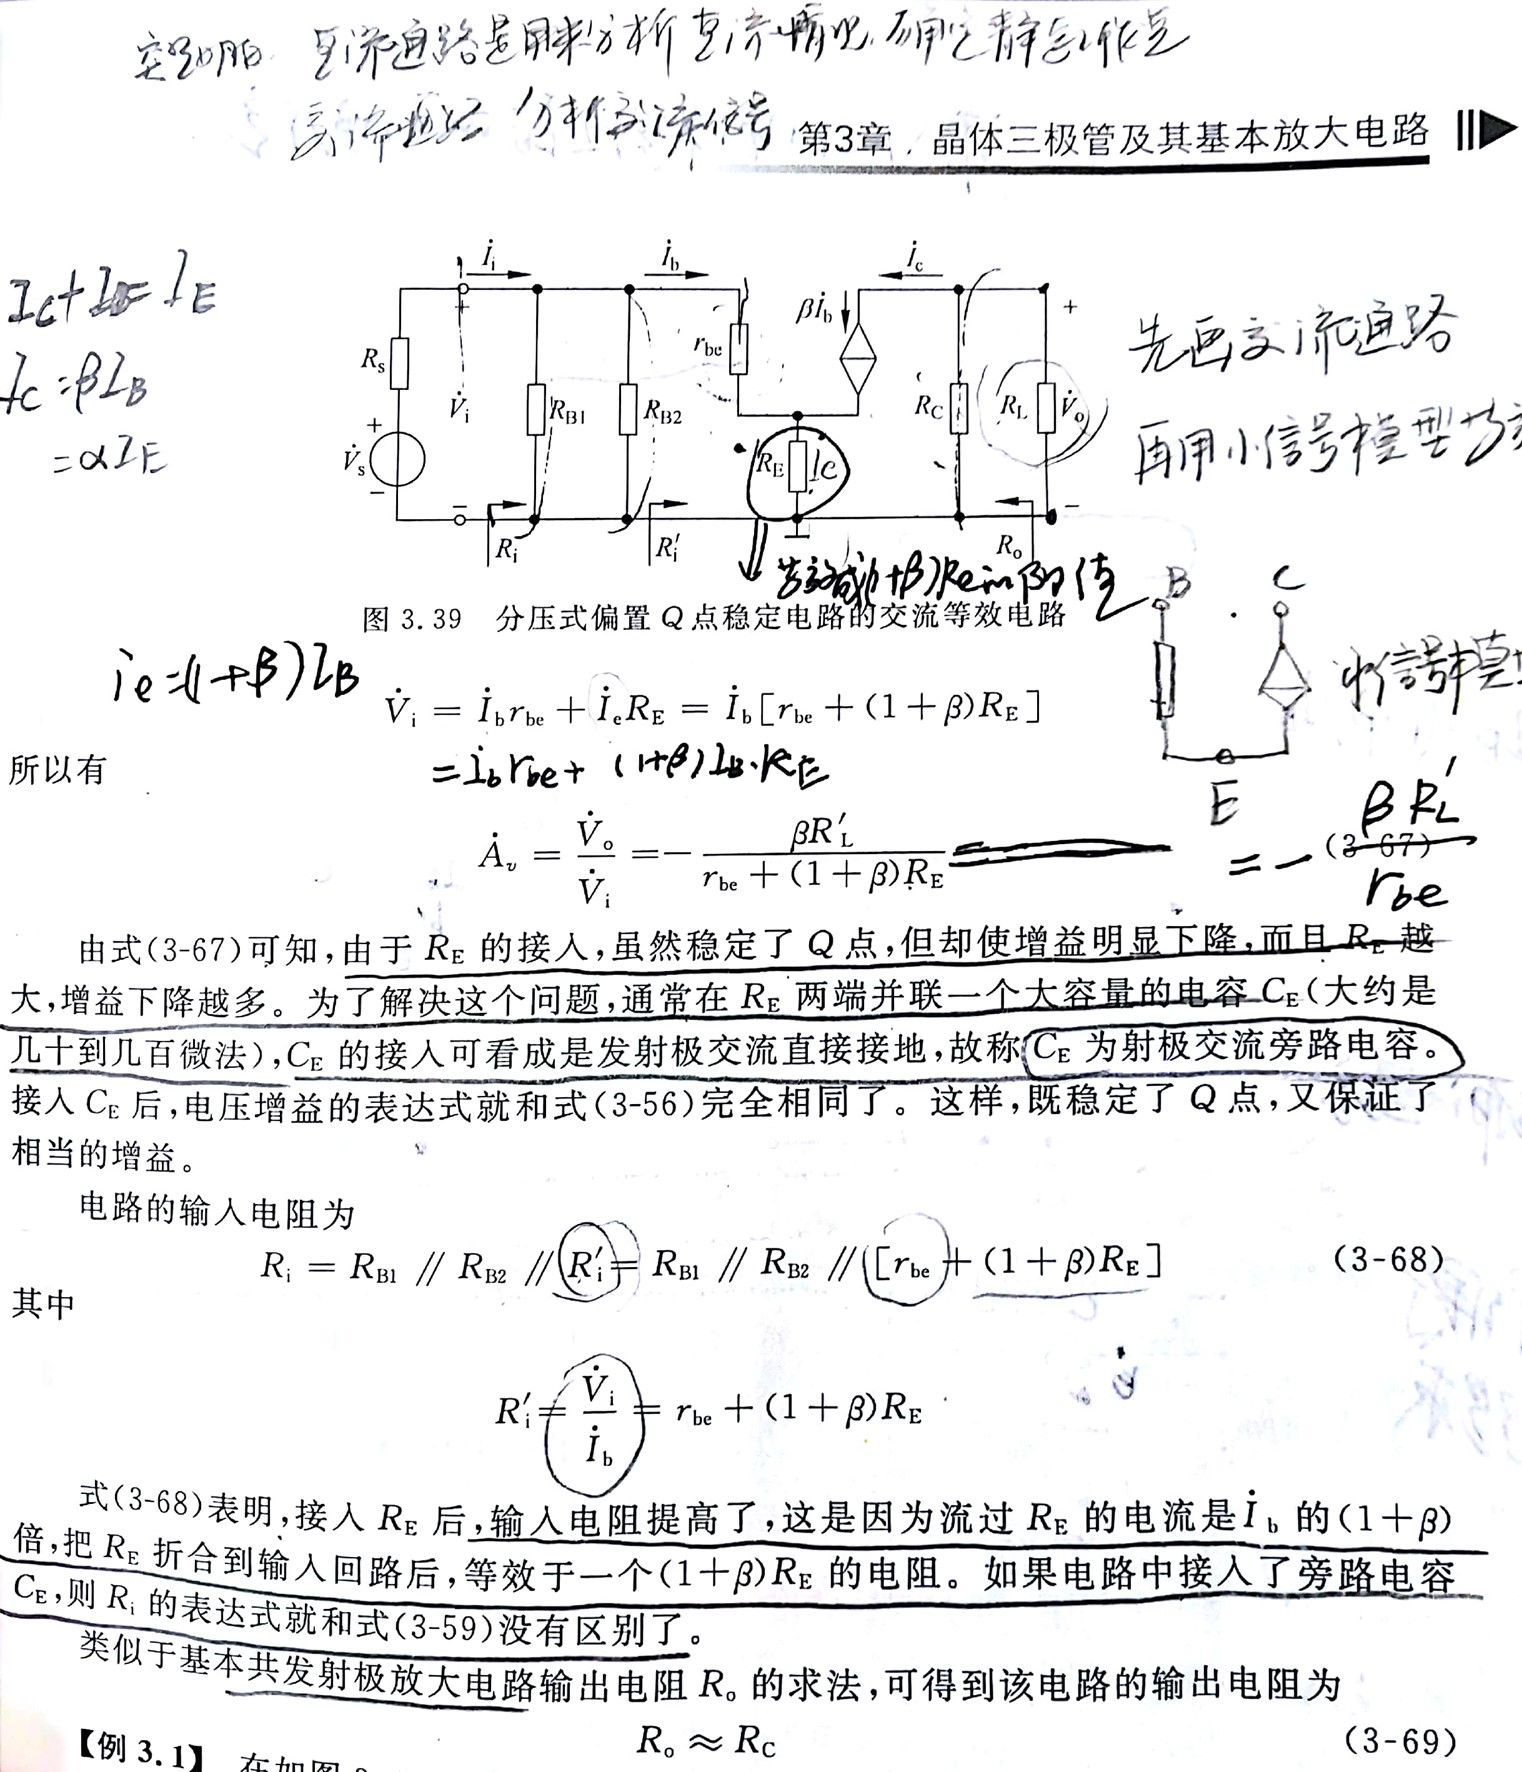 直流通路是用来分析直流情况,确定静态工作点
交流通路 分析交流信号
第3章 晶体三极管及其基本放大电路
İi
İb
İc
Ic+IB=IE
Ic=βIB
=αIE
Rs
V̇s
V̇i
RB1
RB2
rbe
βİb
RC
RL
V̇o
RE
Ie
Ri
R′i
Ro
先画交流通路
再用小信号模型
(1+β)Re的阻值
B
C
E
小信号模型
图 3.39 分压式偏置 Q 点稳定电路的交流等效电路
ie=(1+β)IB
V̇i = İb rbe + İe RE = İb[rbe + (1+β)RE]
所以有
= İb rbe + (1+β)IB·RE
Ȧv = V̇o/V̇i = − βR′L/(rbe + (1+β)RE)
(3-67)
= − βR′L/rbe
由式(3-67)可知,由于 RE 的接入,虽然稳定了 Q 点,但却使增益明显下降,而且 RE 越
大,增益下降越多。为了解决这个问题,通常在 RE 两端并联一个大容量的电容 CE(大约是
几十到几百微法),CE 的接入可看成是发射极交流直接接地,故称 CE 为射极交流旁路电容。
接入 CE 后,电压增益的表达式就和式(3-56)完全相同了。这样,既稳定了 Q 点,又保证了
相当的增益。
电路的输入电阻为
Ri = RB1 // RB2 // R′i = RB1 // RB2 // [rbe + (1+β)RE] (3-68)
其中
R′i = V̇i/İb = rbe + (1+β)RE
式(3-68)表明,接入 RE 后,输入电阻提高了,这是因为流过 RE 的电流是 İb 的(1+β)
倍,把 RE 折合到输入回路后,等效于一个(1+β)RE 的电阻。如果电路中接入了旁路电容
CE,则 Ri 的表达式就和式(3-59)没有区别了。
类似于基本共发射极放大电路输出电阻 Ro 的求法,可得到该电路的输出电阻为
Ro ≈ RC (3-69)
【例 3.1】 在如图